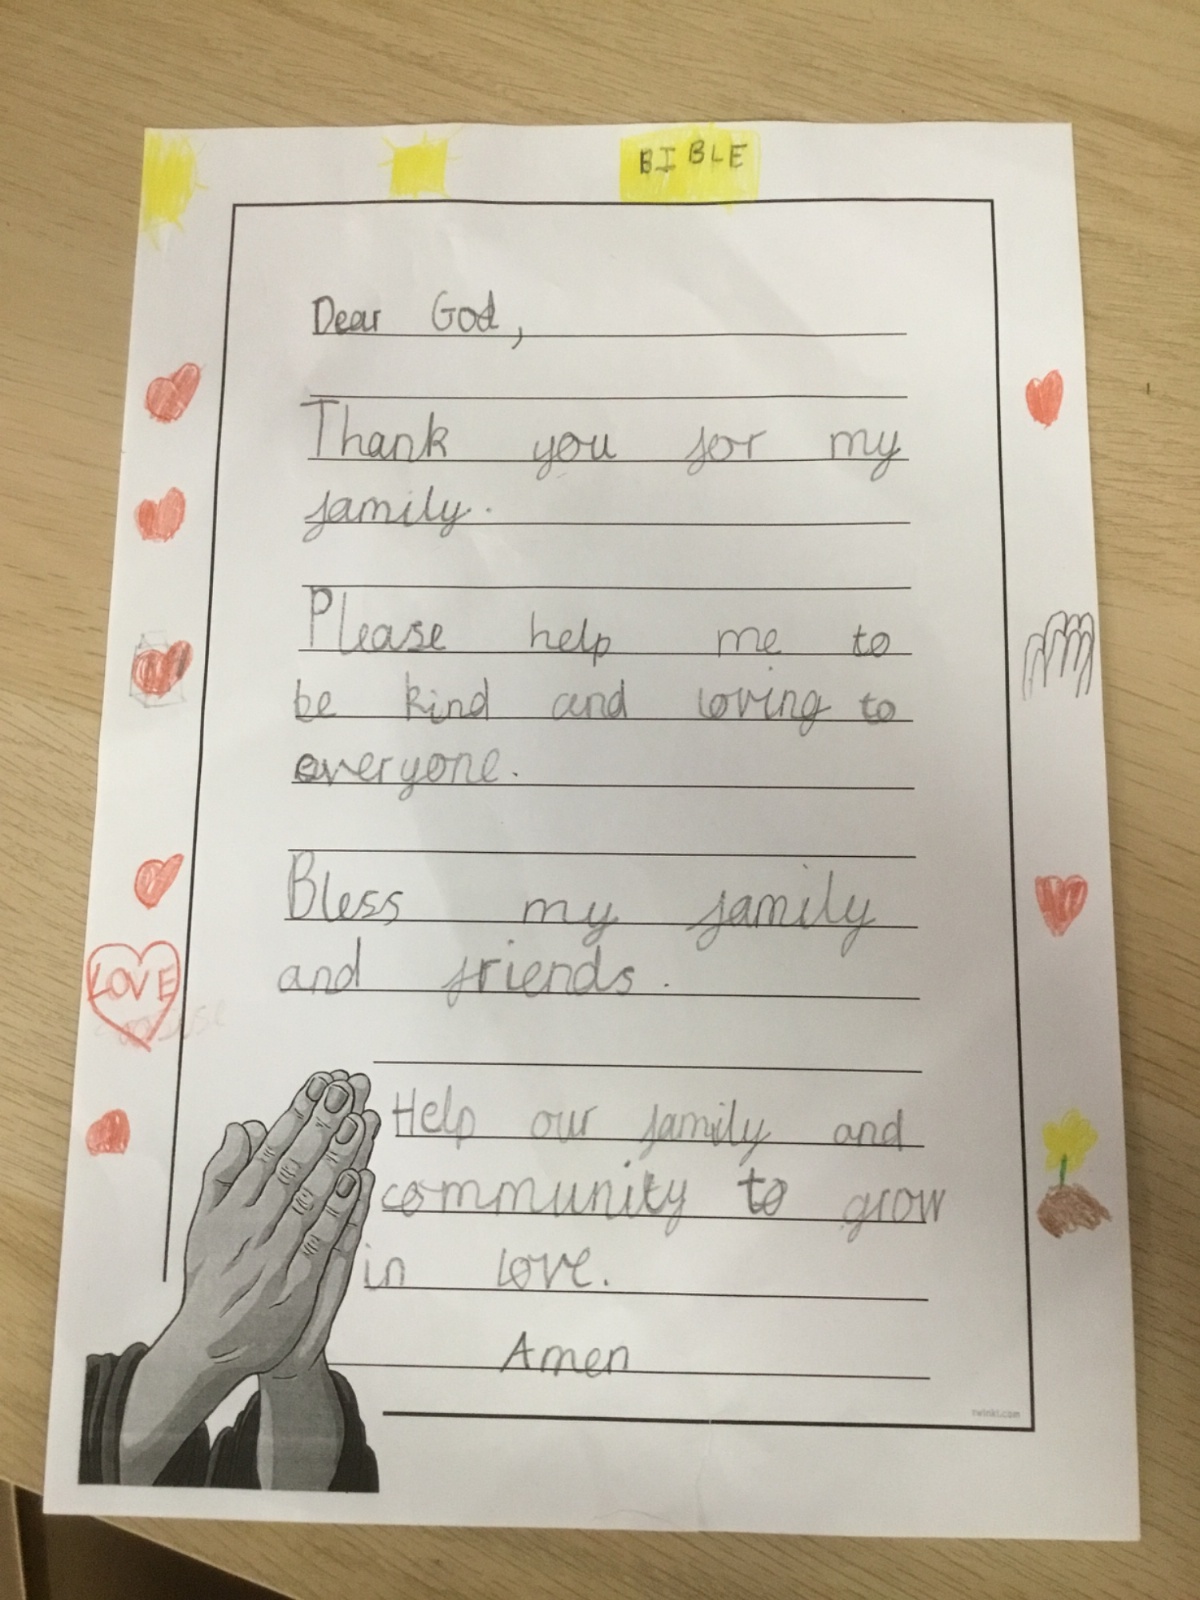 BIBLE
Dear God,
Thank you for my
family.
Please help me to
be kind and loving to
everyone.
Bless my family
and friends.
LOVE
Help our family and
community to grow
in love.
Amen
twinkl.com